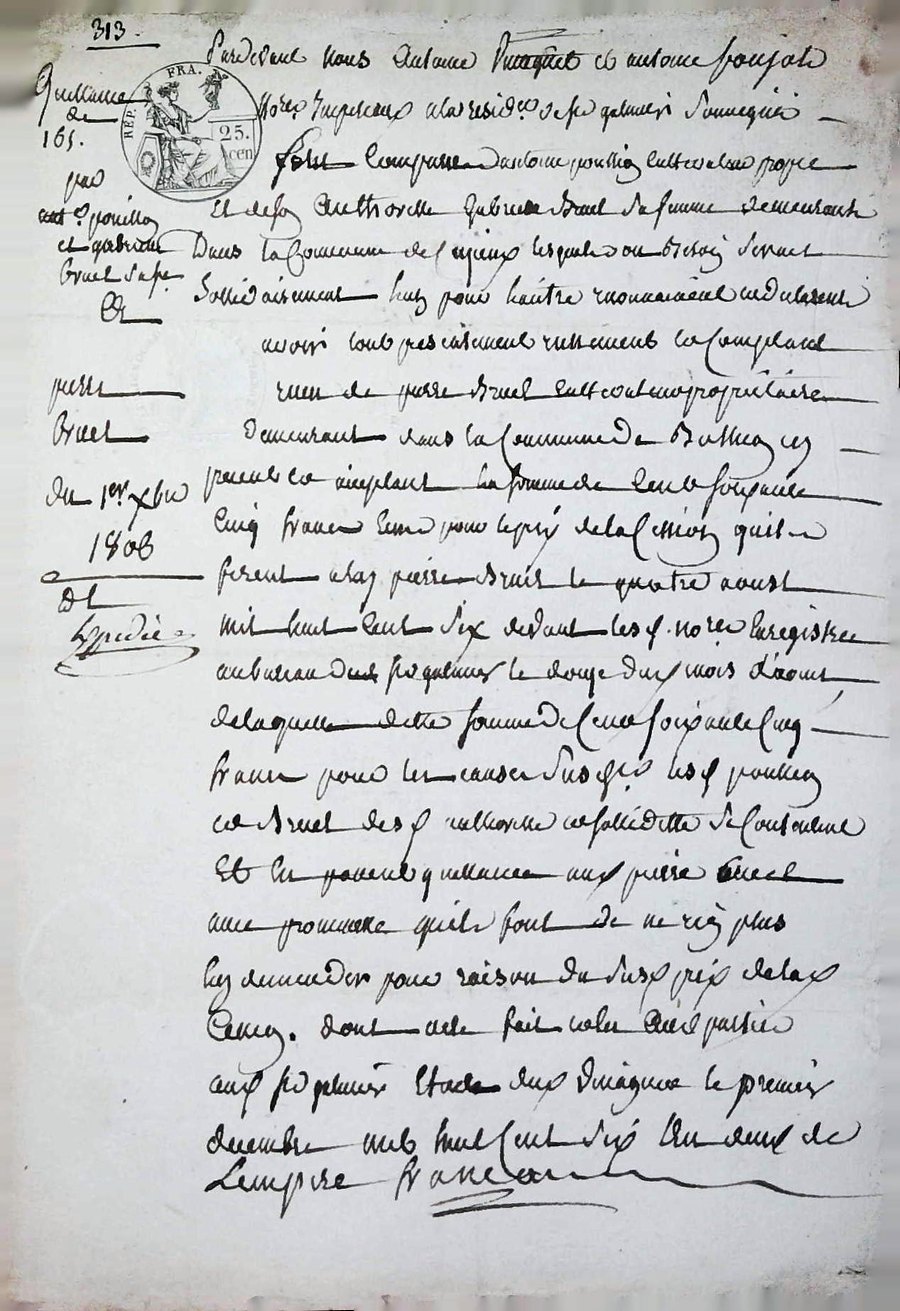 313.
Quittance
de
165.
par
ant.e poullion
et gabrielle
bruel sa fe.
Et
pierre
bruel
du 1er xbre
1806
Et
Expedié
REP. FRA.
25.
cen
Pardevant nous Antoine et antoine
Nores Imperiaux a la resid.ce de st galmier soussignés
furent Comparu antoine poullion cultivateur propre
Et de son Authorité Gabrielle Bruel sa femme demeurants
Dans la Commune de lesquels ont De
Sollidairement l'un pour l'autre reconnaissent et declarent
avoir tout presentement reellement et Comptant
recu de pierre Bruel cultivateur proprietaire
Demeurant dans la Commune de icy
present et aceptant la somme de Cent soixante
Cinq francs Cette pour le prix de la Cession quils
firent aud. pierre Bruel le quatre aoust
mil huit Cent Six devant les d. nores Enregistrée
au bureau de st galmier le douze dud. mois d'aoust
de laquelle ditte somme de Cent soixante Cinq
francs pour les causes susd. les d. poullion
et Bruel de sd. authorité et sollidité se Contentent
Et en passent quittance aud. pierre Bruel
avec promesse quils font de ne rien plus
luy demander pour raison du susd. prix de lad.
Cession. dont acte fait et lu aux parties
aud. st galmier Etude dud. le premier
decembre mil huit Cent Six l'an deux de
L'empire francais